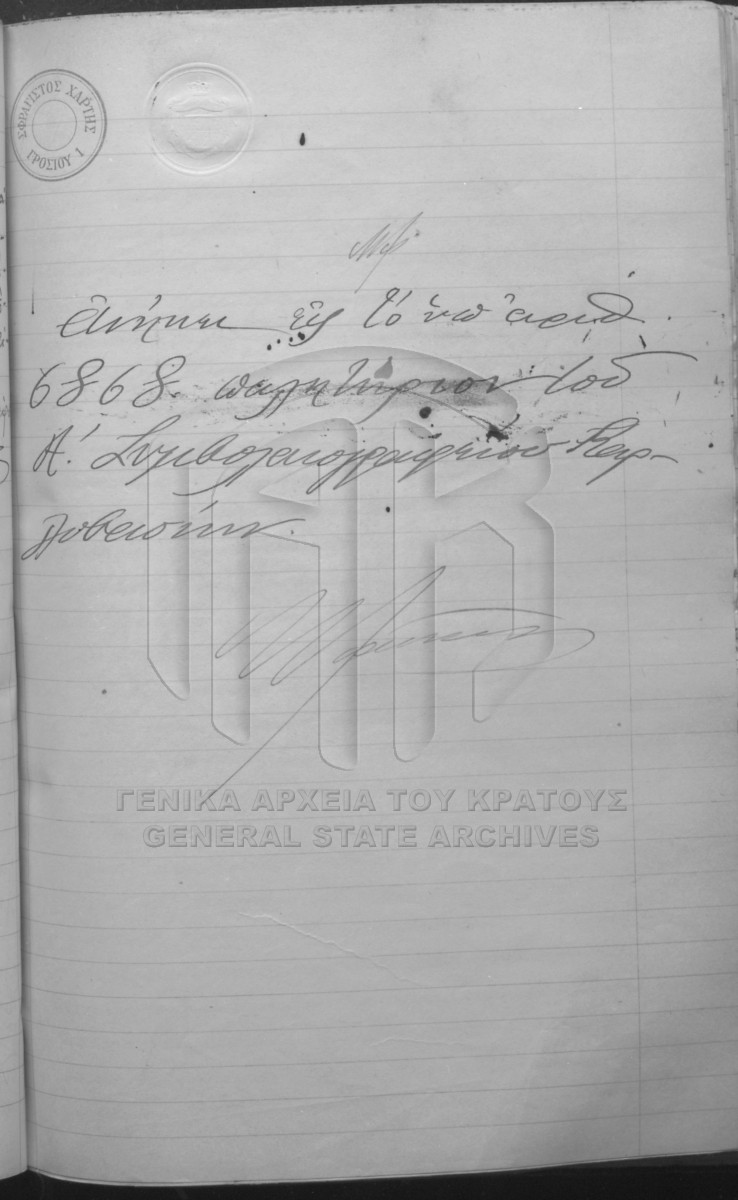 ΣΦΡΑΓΙΣΤΟΣ ΧΑΡΤΗΣ
ΓΡΟΣΙΟΥ 1
Ἀνήκει εἰς τό ὑπ' ἀριθ.
6868. πωλητήριον τοῦ
Α'. Συμβολαιογραφείου Καρ-
λοβασίων.
ΓΕΝΙΚΑ ΑΡΧΕΙΑ ΤΟΥ ΚΡΑΤΟΥΣ
GENERAL STATE ARCHIVES